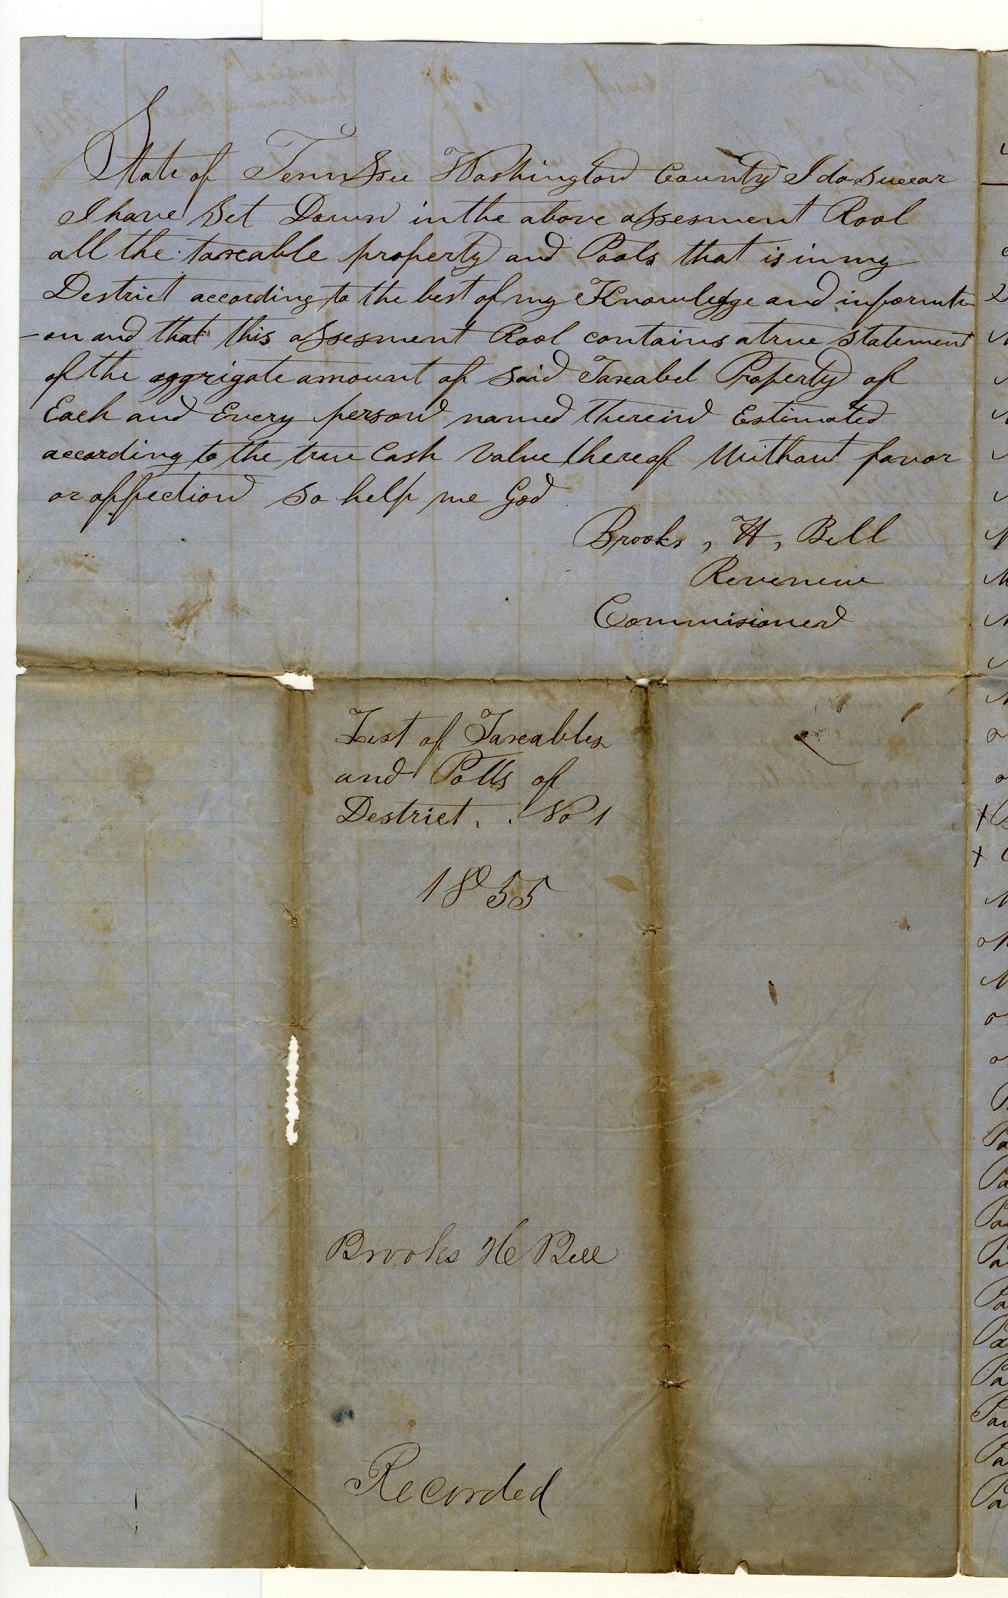 State of Tennssee Washington County I do swear
I have Set Down in the above assesment Rool
all the taxeable property and Pools that is in my
Destrict according to the best of my Knowledge and informati
-on and that this assesment Rool contains a true Statement
of the aggrigate amount of said Taxabel Property of
Each and Every person named therein Estimated
according to the true Cash Value thereof Without favor
or affection So help me God
Brooks, H, Bell
Revenue
Commisioner
List of Taxeables
and Polls of
Destrict. . No 1
1855
Brooks H Bell
Recorded